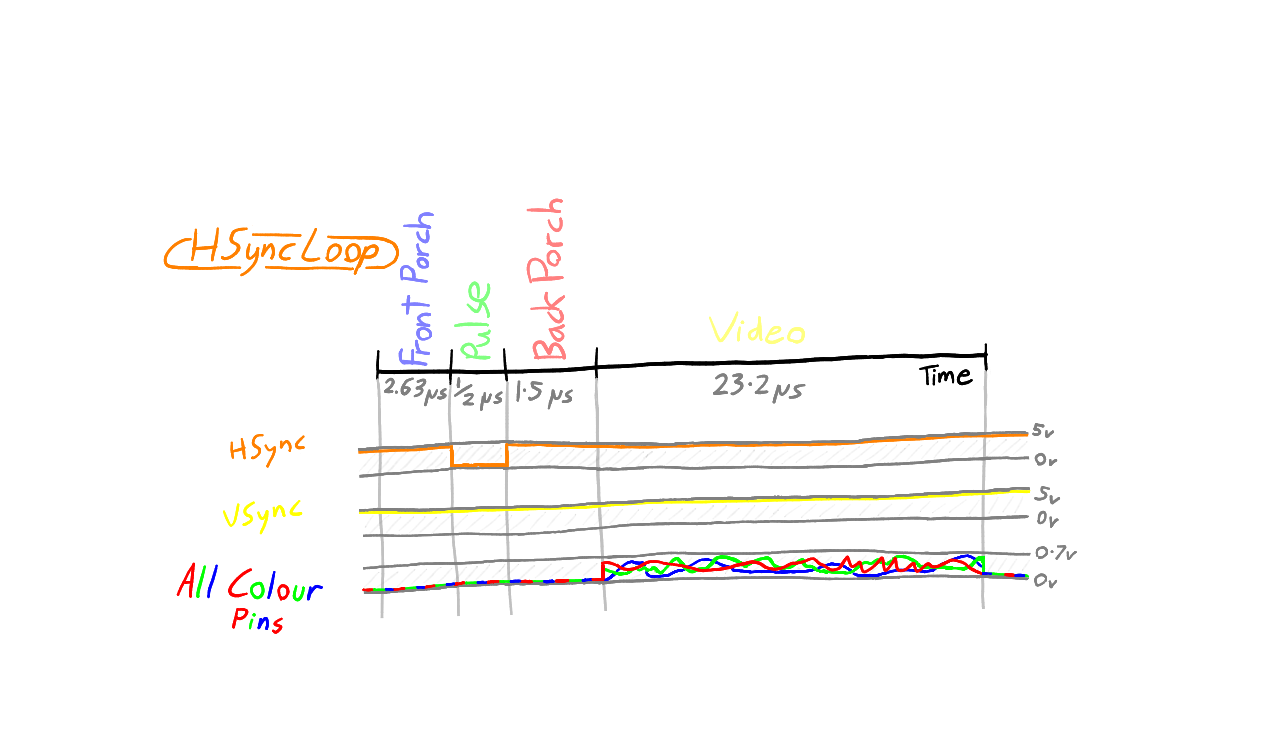 HSync Loop
Front Porch
Pulse
Back Porch
Video
2.63μs
1/2 μs
1.5 μs
23.2μs
Time
HSync
5v
0v
VSync
5v
0v
All Colour
Pins
0.7v
0v